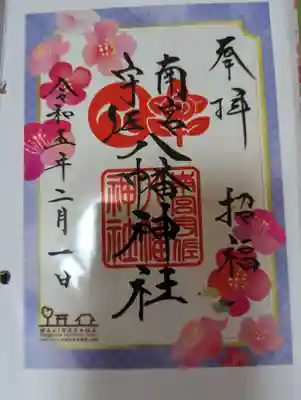 奉拝
招福
南宮
宇佐八幡神社
令和五年二月一日